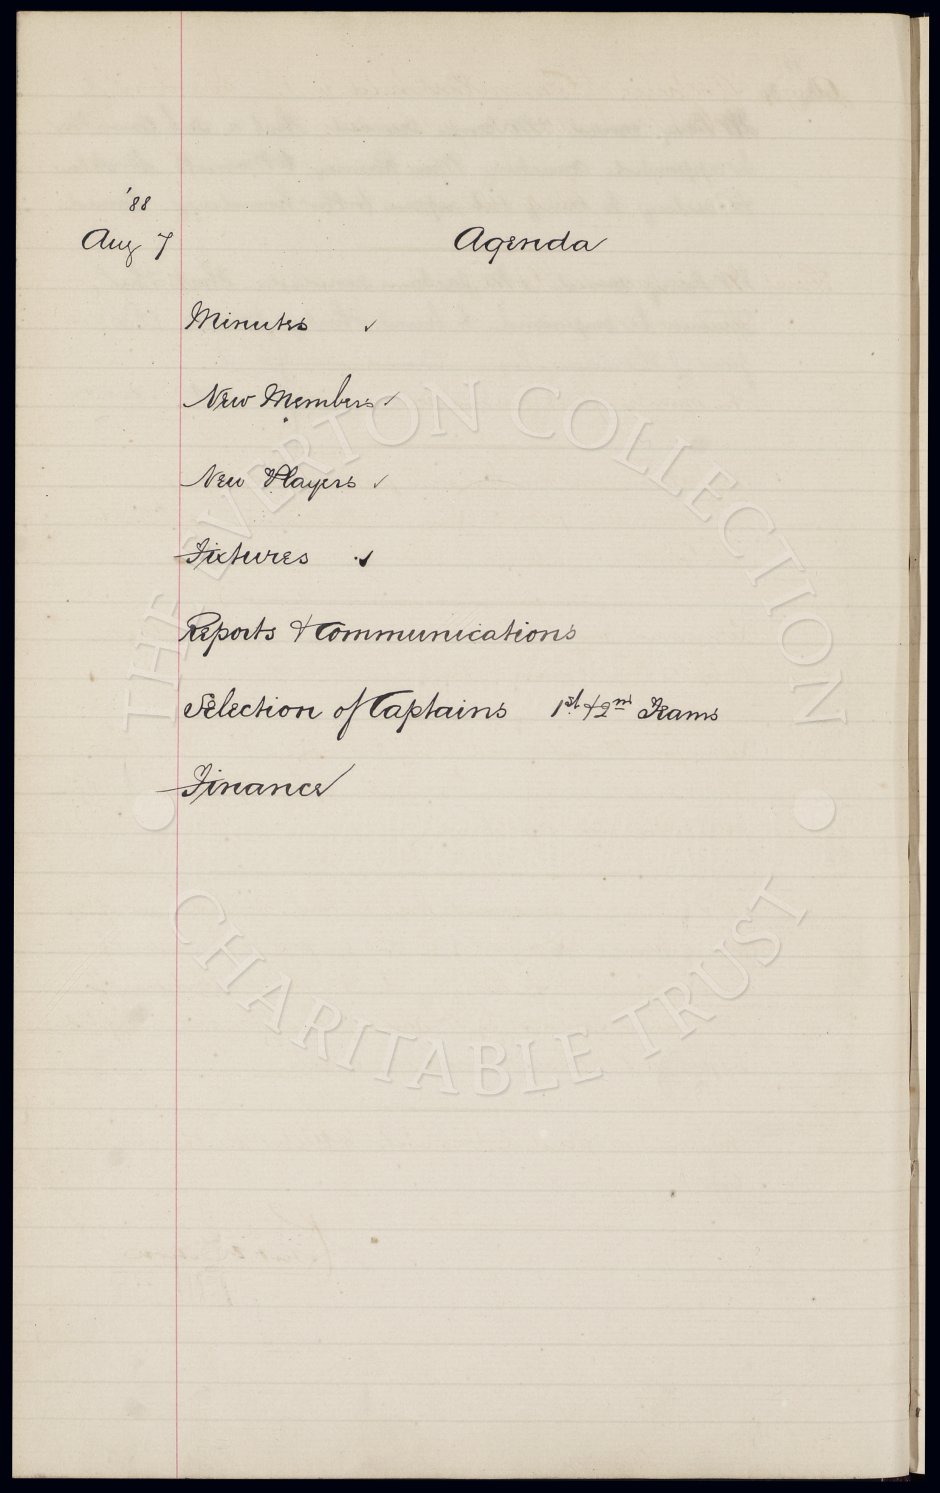 '88
Aug 7 Agenda
Minutes ✓
New Members ✓
New Players ✓
Fixtures ✓
Reports & Communications
Selection of Captains 1st & 2nd Teams
Finance
THE EVERTON COLLECTION
CHARITABLE TRUST